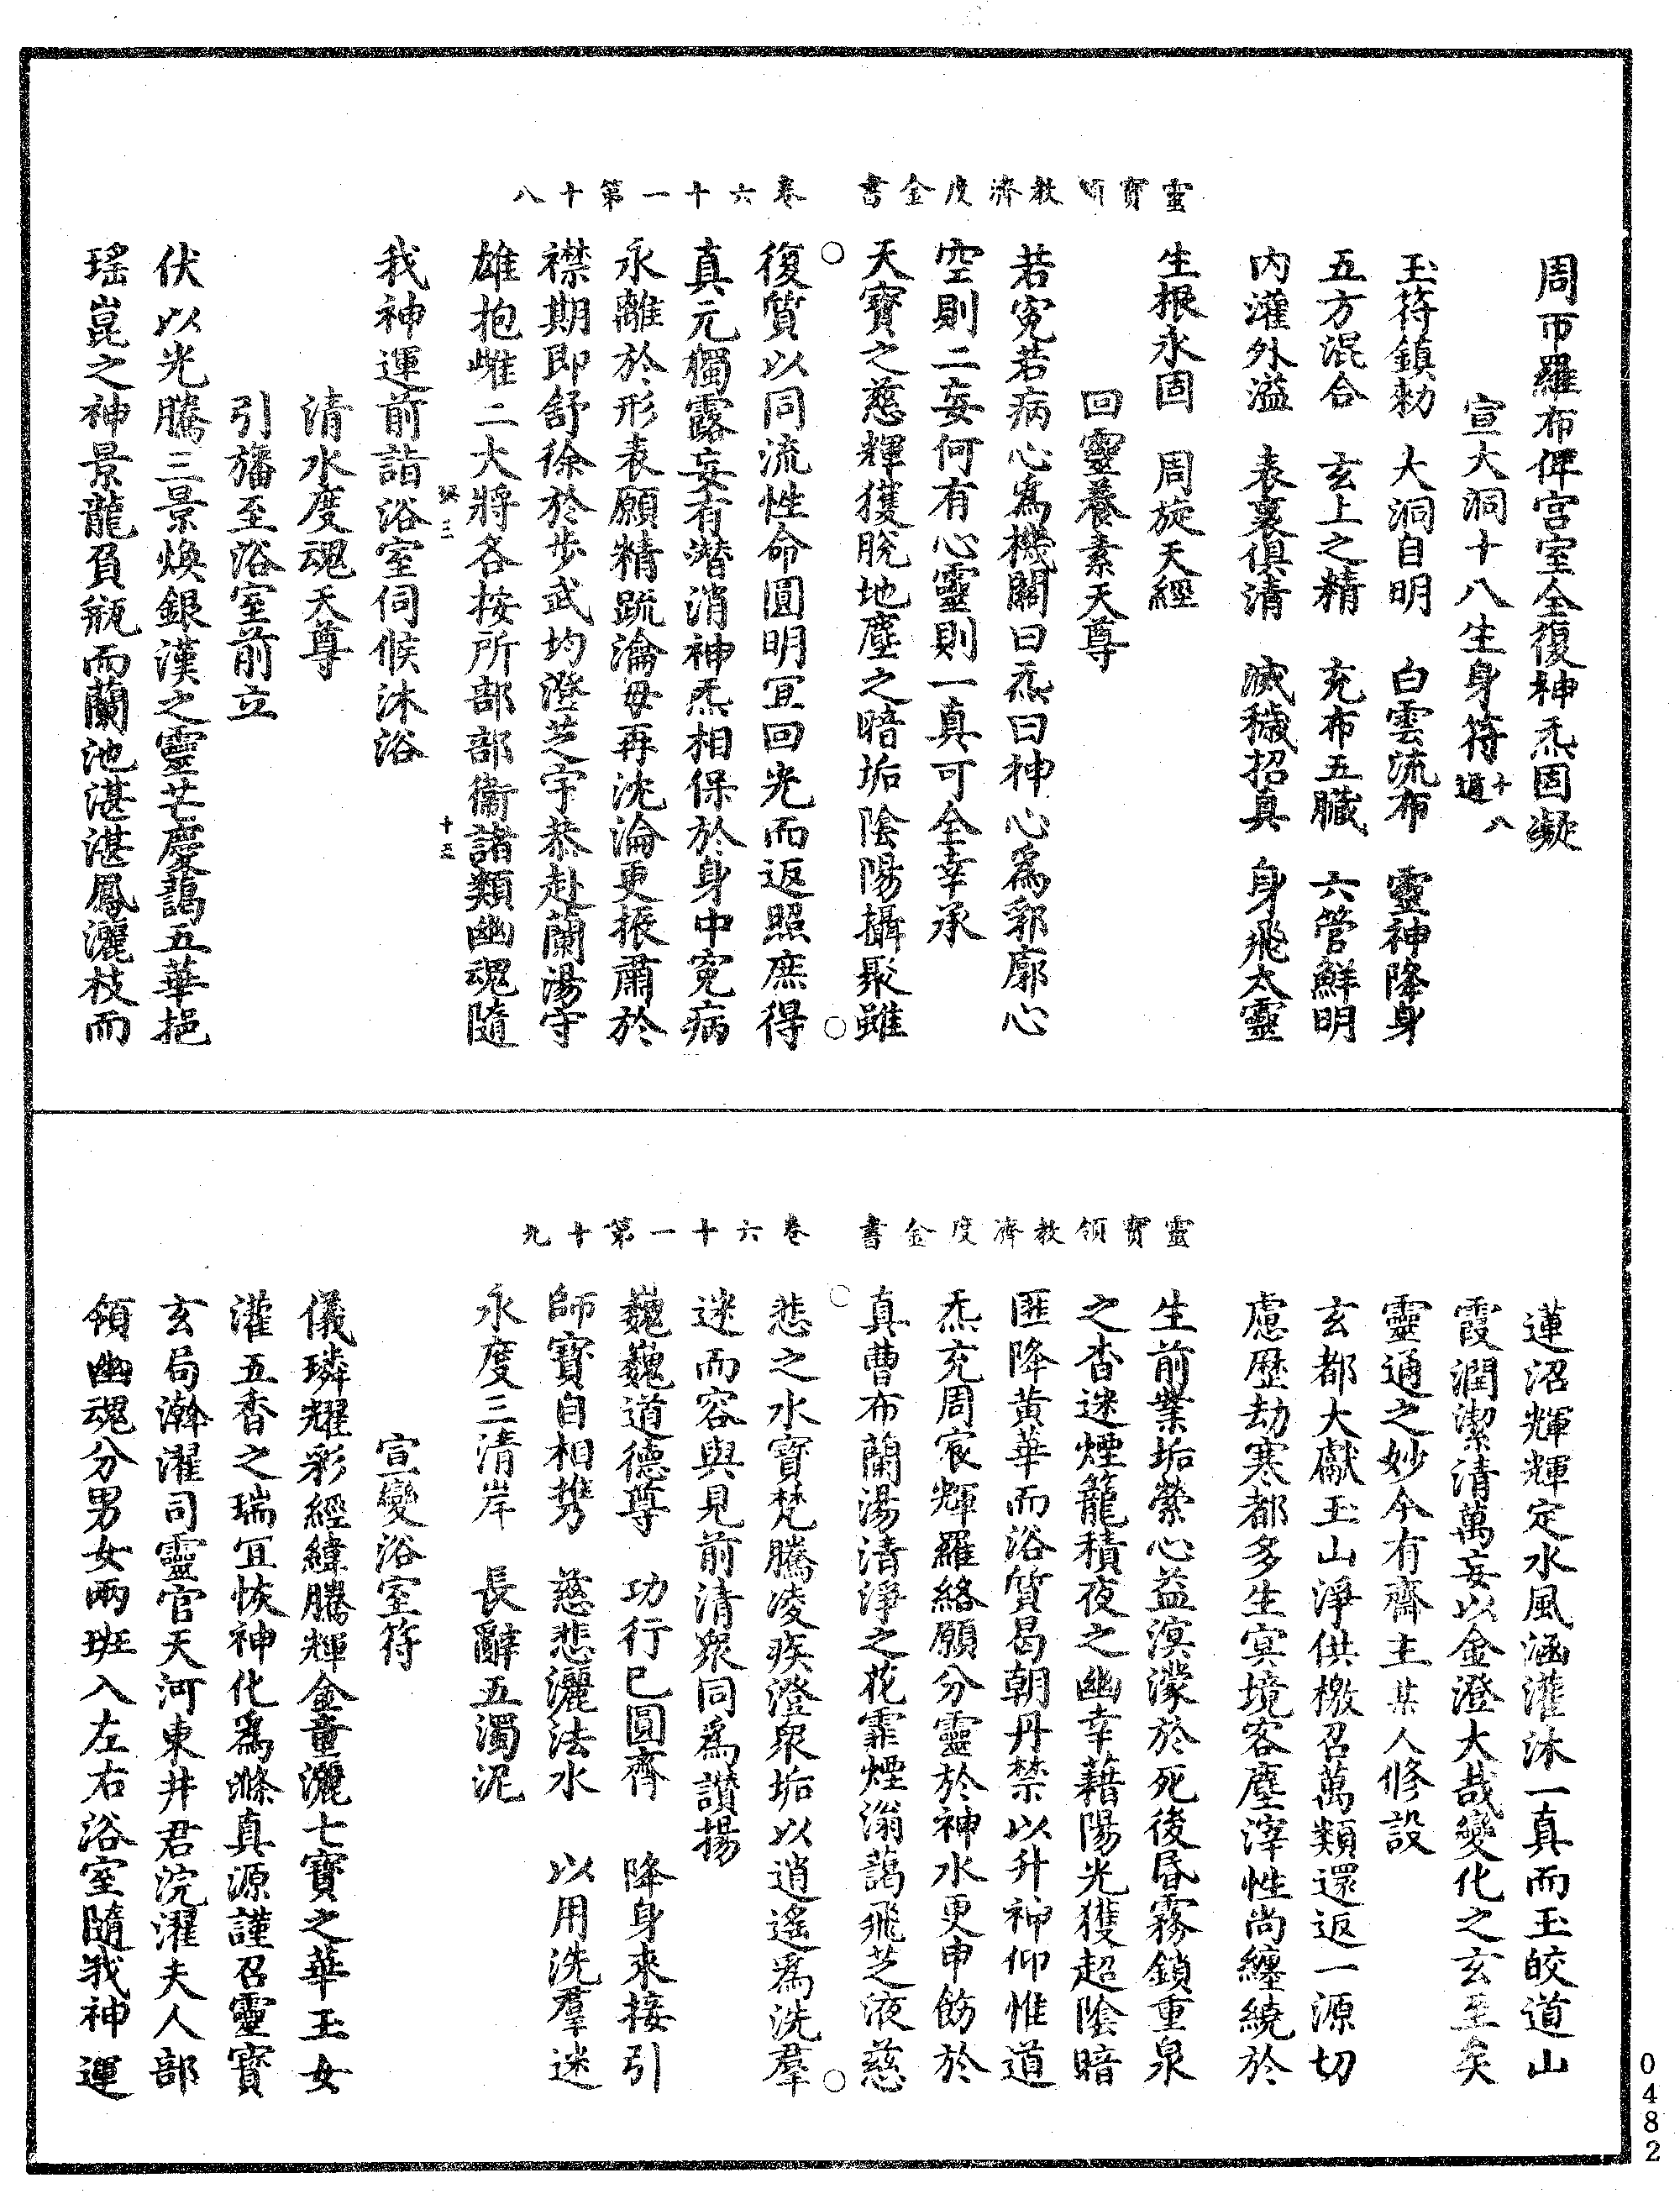 靈寶領教濟度金書　卷六十一第十八
周帀羅布俾宮室全復神炁固凝
宣大洞十八生身符十八道
玉符鎮勑　大洞自明　白雲流布　靈神降身
五方混合　玄上之精　充布五臟　六管鮮明
內灌外溢　表裏俱清　滅穢招真　身飛太靈
生根永固　周旋天經
回靈養素天尊
若寃若病心爲機關曰炁曰神心爲郛廓心
空則二妄何有心靈則一真可全幸承
天寶之慈輝獲脫地塵之暗垢陰陽攝聚雖
復質以同流性命圓明冝回光而返照庶得
真元獨露妄有潛消神炁相保於身中寃病
永離於形表願精䟽瀹毋再沈淪更振肅於
襟期即舒徐於步武均澄芝宇恭赴蘭湯守
雄抱雌二大將各按所部部衞諸類幽魂隨
十五
我神運前詣浴室伺候沐浴
清水度魂天尊
引旛至浴室前立
伏以光騰三景煥銀漢之靈芒慶藹五華挹
瑤崑之神景龍負瓶而蘭池湛湛鳳灑枝而
靈寶領教濟度金書　卷六十一第十九
蓮沼輝輝定水風涵灌沐一真而玉皎道山
霞潤潔清萬妄以金澄大哉變化之玄至矣
靈通之妙今有齋主某人修設
玄都大獻玉山淨供檄召萬類還返一源切
慮歷劫寒都多生寘境客塵滓性尚纏繞於
生前業垢縈心益溟濛於死後昏霧鎖重泉
之杳迷煙籠積夜之幽幸藉陽光獲超陰暗
匪降黃華而浴質曷朝丹禁以升神仰惟道
炁充周宸輝羅絡願分靈於神水更申飭於
真曹布蘭湯清淨之花霏煙滃藹飛芝液慈
悲之水寶梵騰凌疾澄衆垢以逍遙爲洗羣
迷而容與見前清衆同爲讚揚
巍巍道德尊　功行已圓齊　降身來接引
師寶自相携　慈悲灑法水　以用洗羣迷
永度三清岸　長辭五濁泥
宣變浴室符
儀璘耀彩經緯騰輝金童灑七寶之華玉女
灌五香之瑞冝恢神化爲滌真源謹召靈寶
玄局瀚濯司靈官天河東井君浣濯夫人部
領幽魂分男女兩班入左右浴室隨我神運
0482